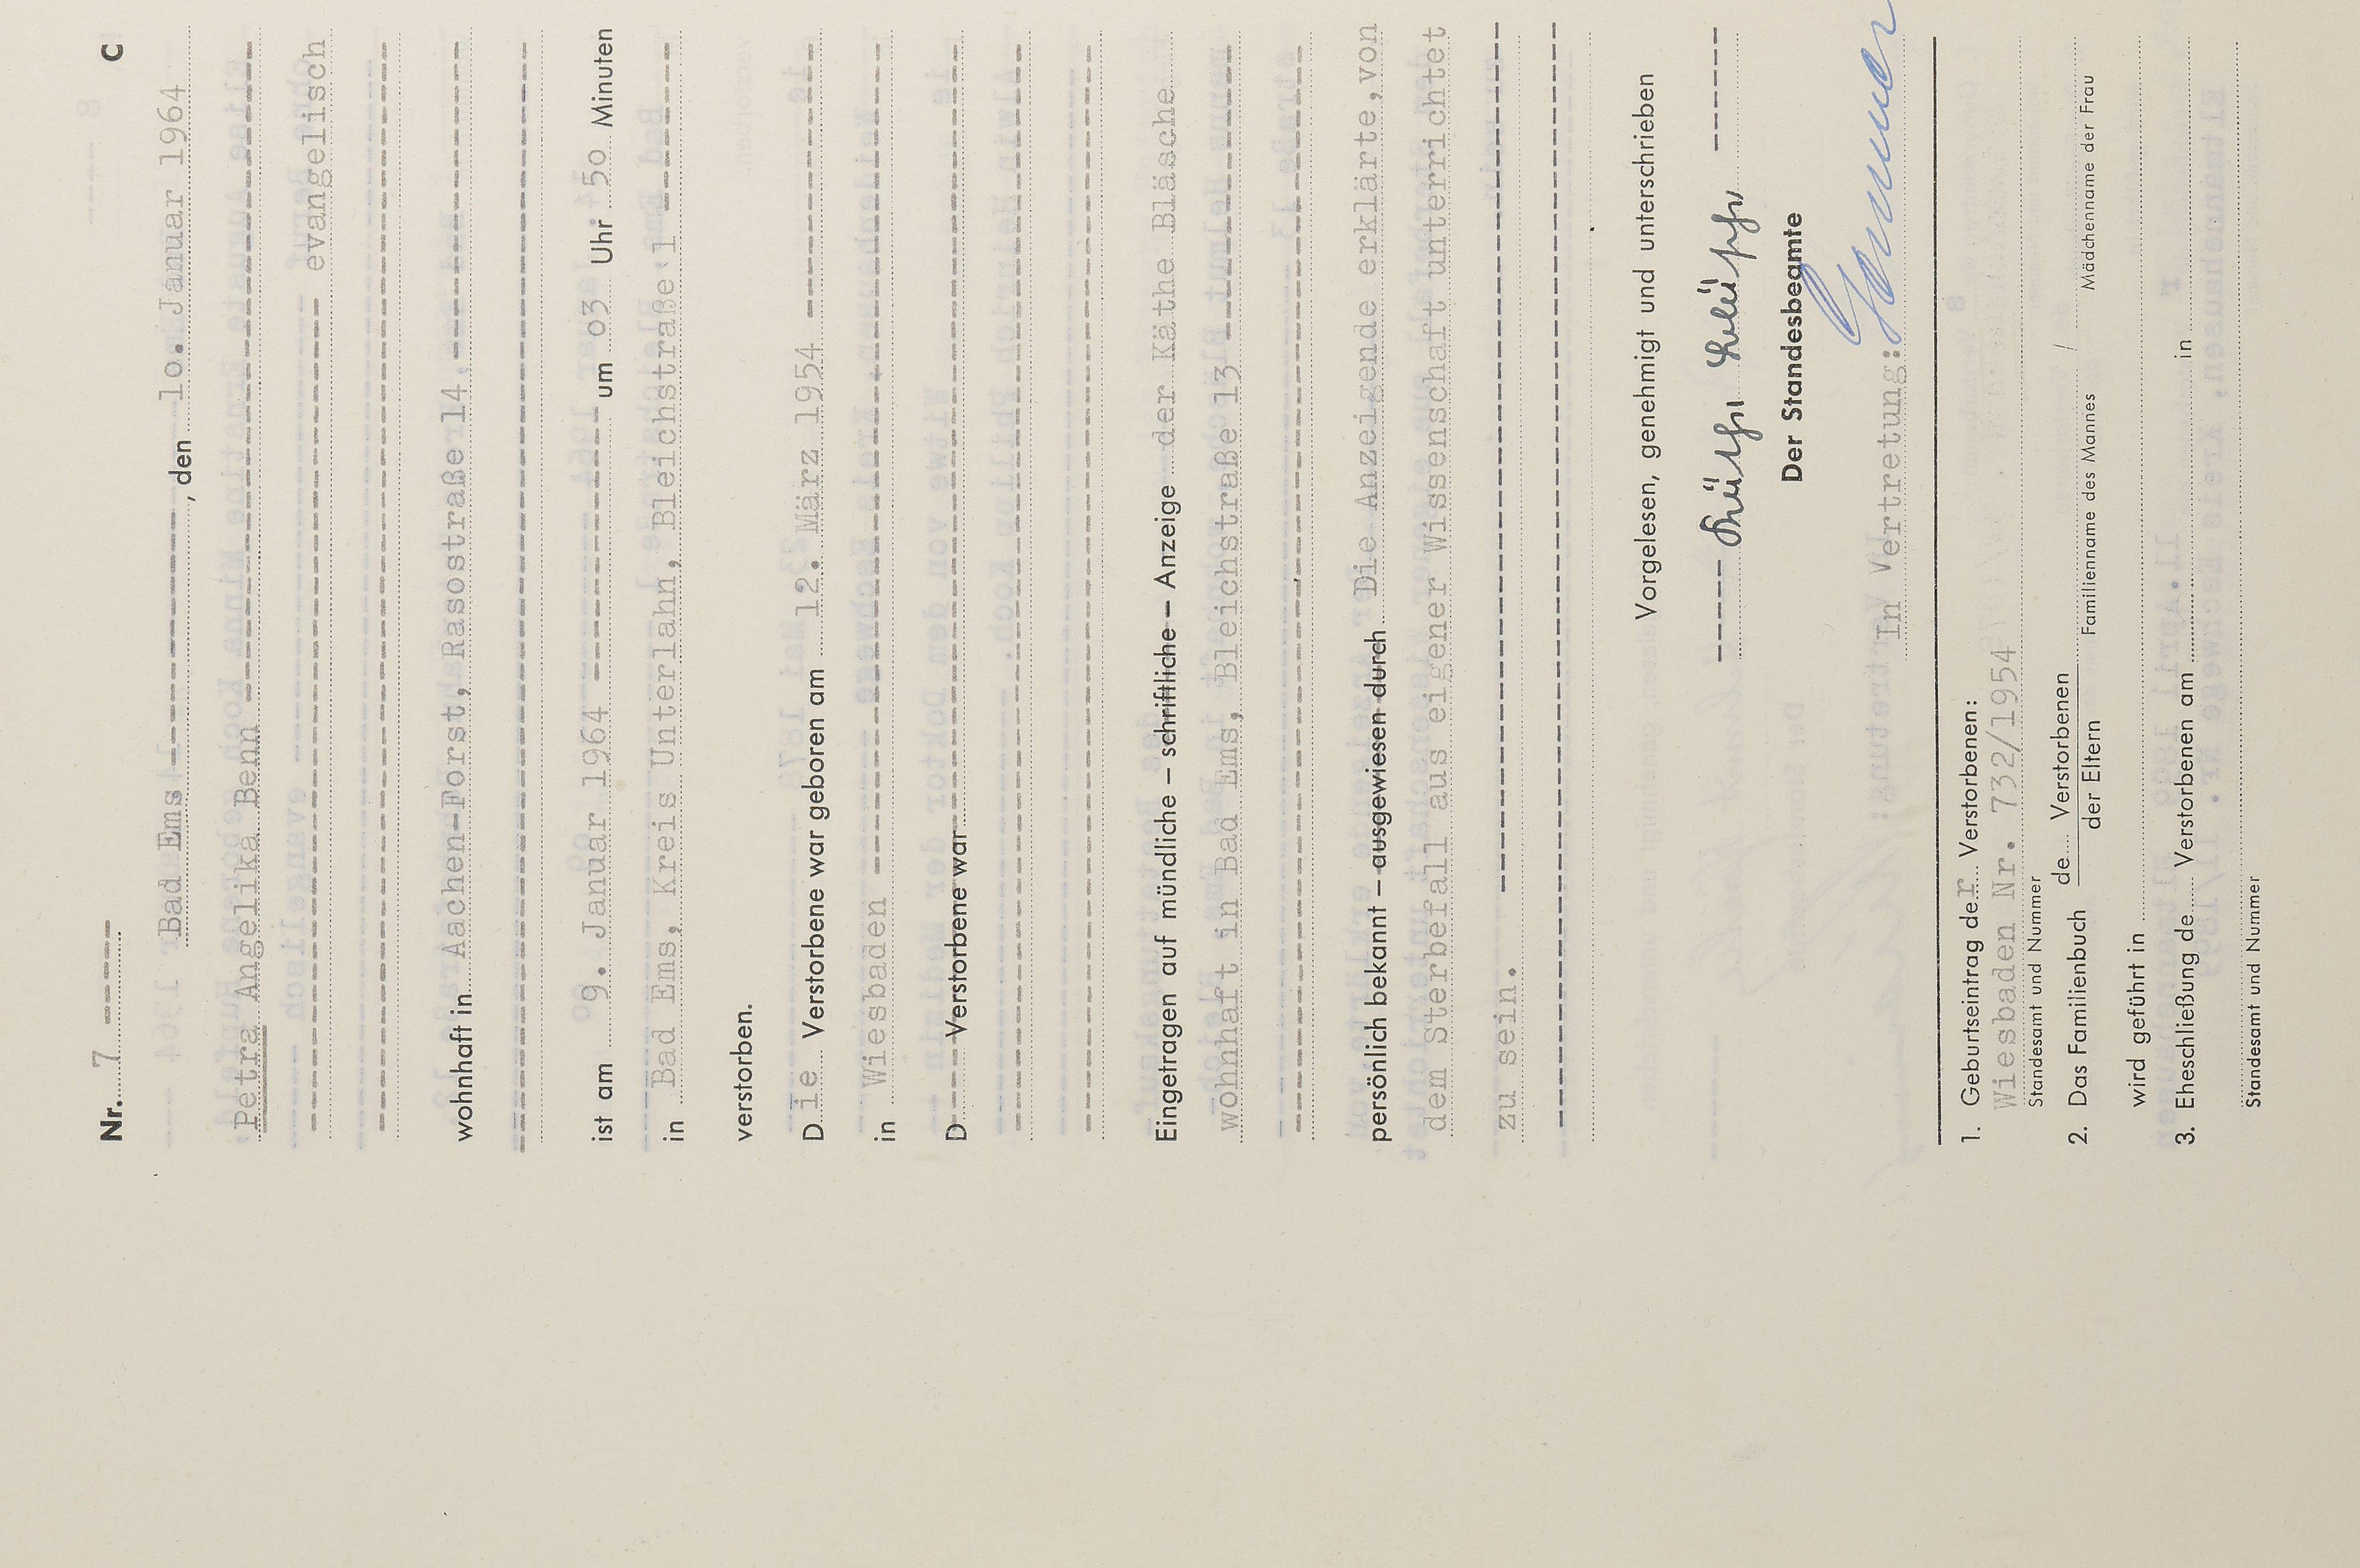 Nr. 7 ----- C
Bad Ems --------------, den lo. Januar 1964
Petra Angelika Benn ----------------------------
------------------------------------ evangelisch
------------------------------------------------
wohnhaft in Aachen-Forst, Rasostraße 14, --------------
------------------------------------------------
ist am 9. Januar 1964 ---------- um o3 Uhr 5o Minuten
in Bad Ems, Kreis Unterlahn, Bleichstraße 1 ---------
verstorben.
Die Verstorbene war geboren am 12. März 1954 ------------
in Wiesbaden ------------------------------------
D---- Verstorbene war ------------------------------------
------------------------------------------------
------------------------------------------------
Eingetragen auf mündliche – schriftliche – Anzeige der Käthe Bläsche
wohnhaft in Bad Ems, Bleichstraße 13 --------------
------------------------------------------------
persönlich bekannt – ausgewiesen durch Die Anzeigende erklärte, von
dem Sterbefall aus eigener Wissenschaft unterrichtet
zu sein. ----------------------------------------
------------------------------------------------
Vorgelesen, genehmigt und unterschrieben
----- Käthe Bläsche ------
Der Standesbeamte
In Vertretung:
1. Geburtseintrag der Verstorbenen:
Wiesbaden Nr. 732/1954
Standesamt und Nummer
2. Das Familienbuch de Verstorbenen / der Eltern
Familienname des Mannes / Mädchenname der Frau
wird geführt in
3. Eheschließung de Verstorbenen am in
Standesamt und Nummer